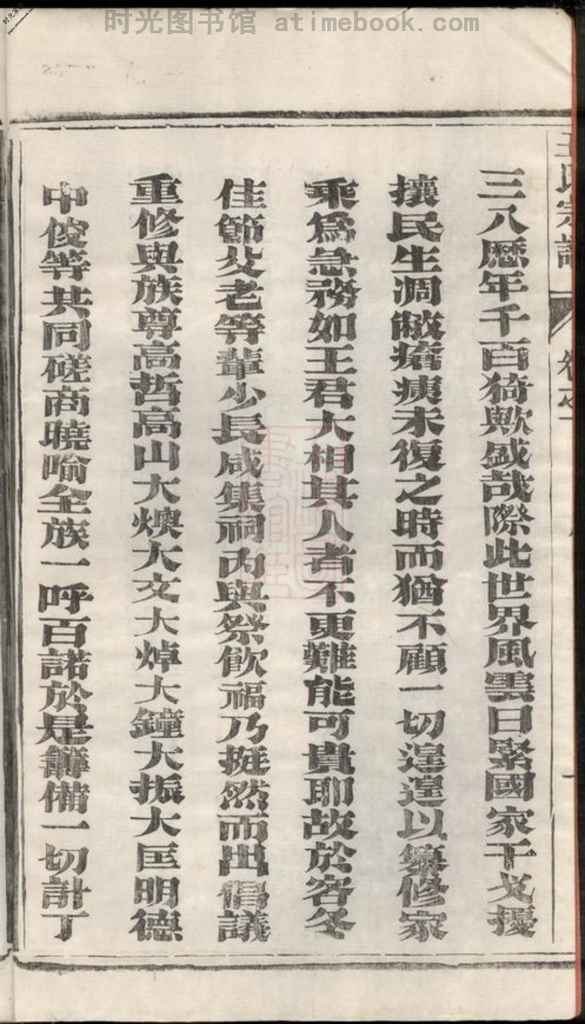 时光图书馆 - atimebook.com
王氏宗譜
三八歷年千百猗歟盛哉際此世界風雲日緊國家干戈擾
攘民生凋敝瘡痍未復之時而猶不顧一切遑遑以纂修家
乘為急務如王君大相其人者不更難能可貴耶故於客冬
佳節父老等輩少長咸集祠內與祭飲福乃挺然而出倡議
重修與族尊高哲高山大煥大文大焯大鐘大振大匡明德
中俊等共同磋商曉喻全族一呼百諾於是籌備一切計丁